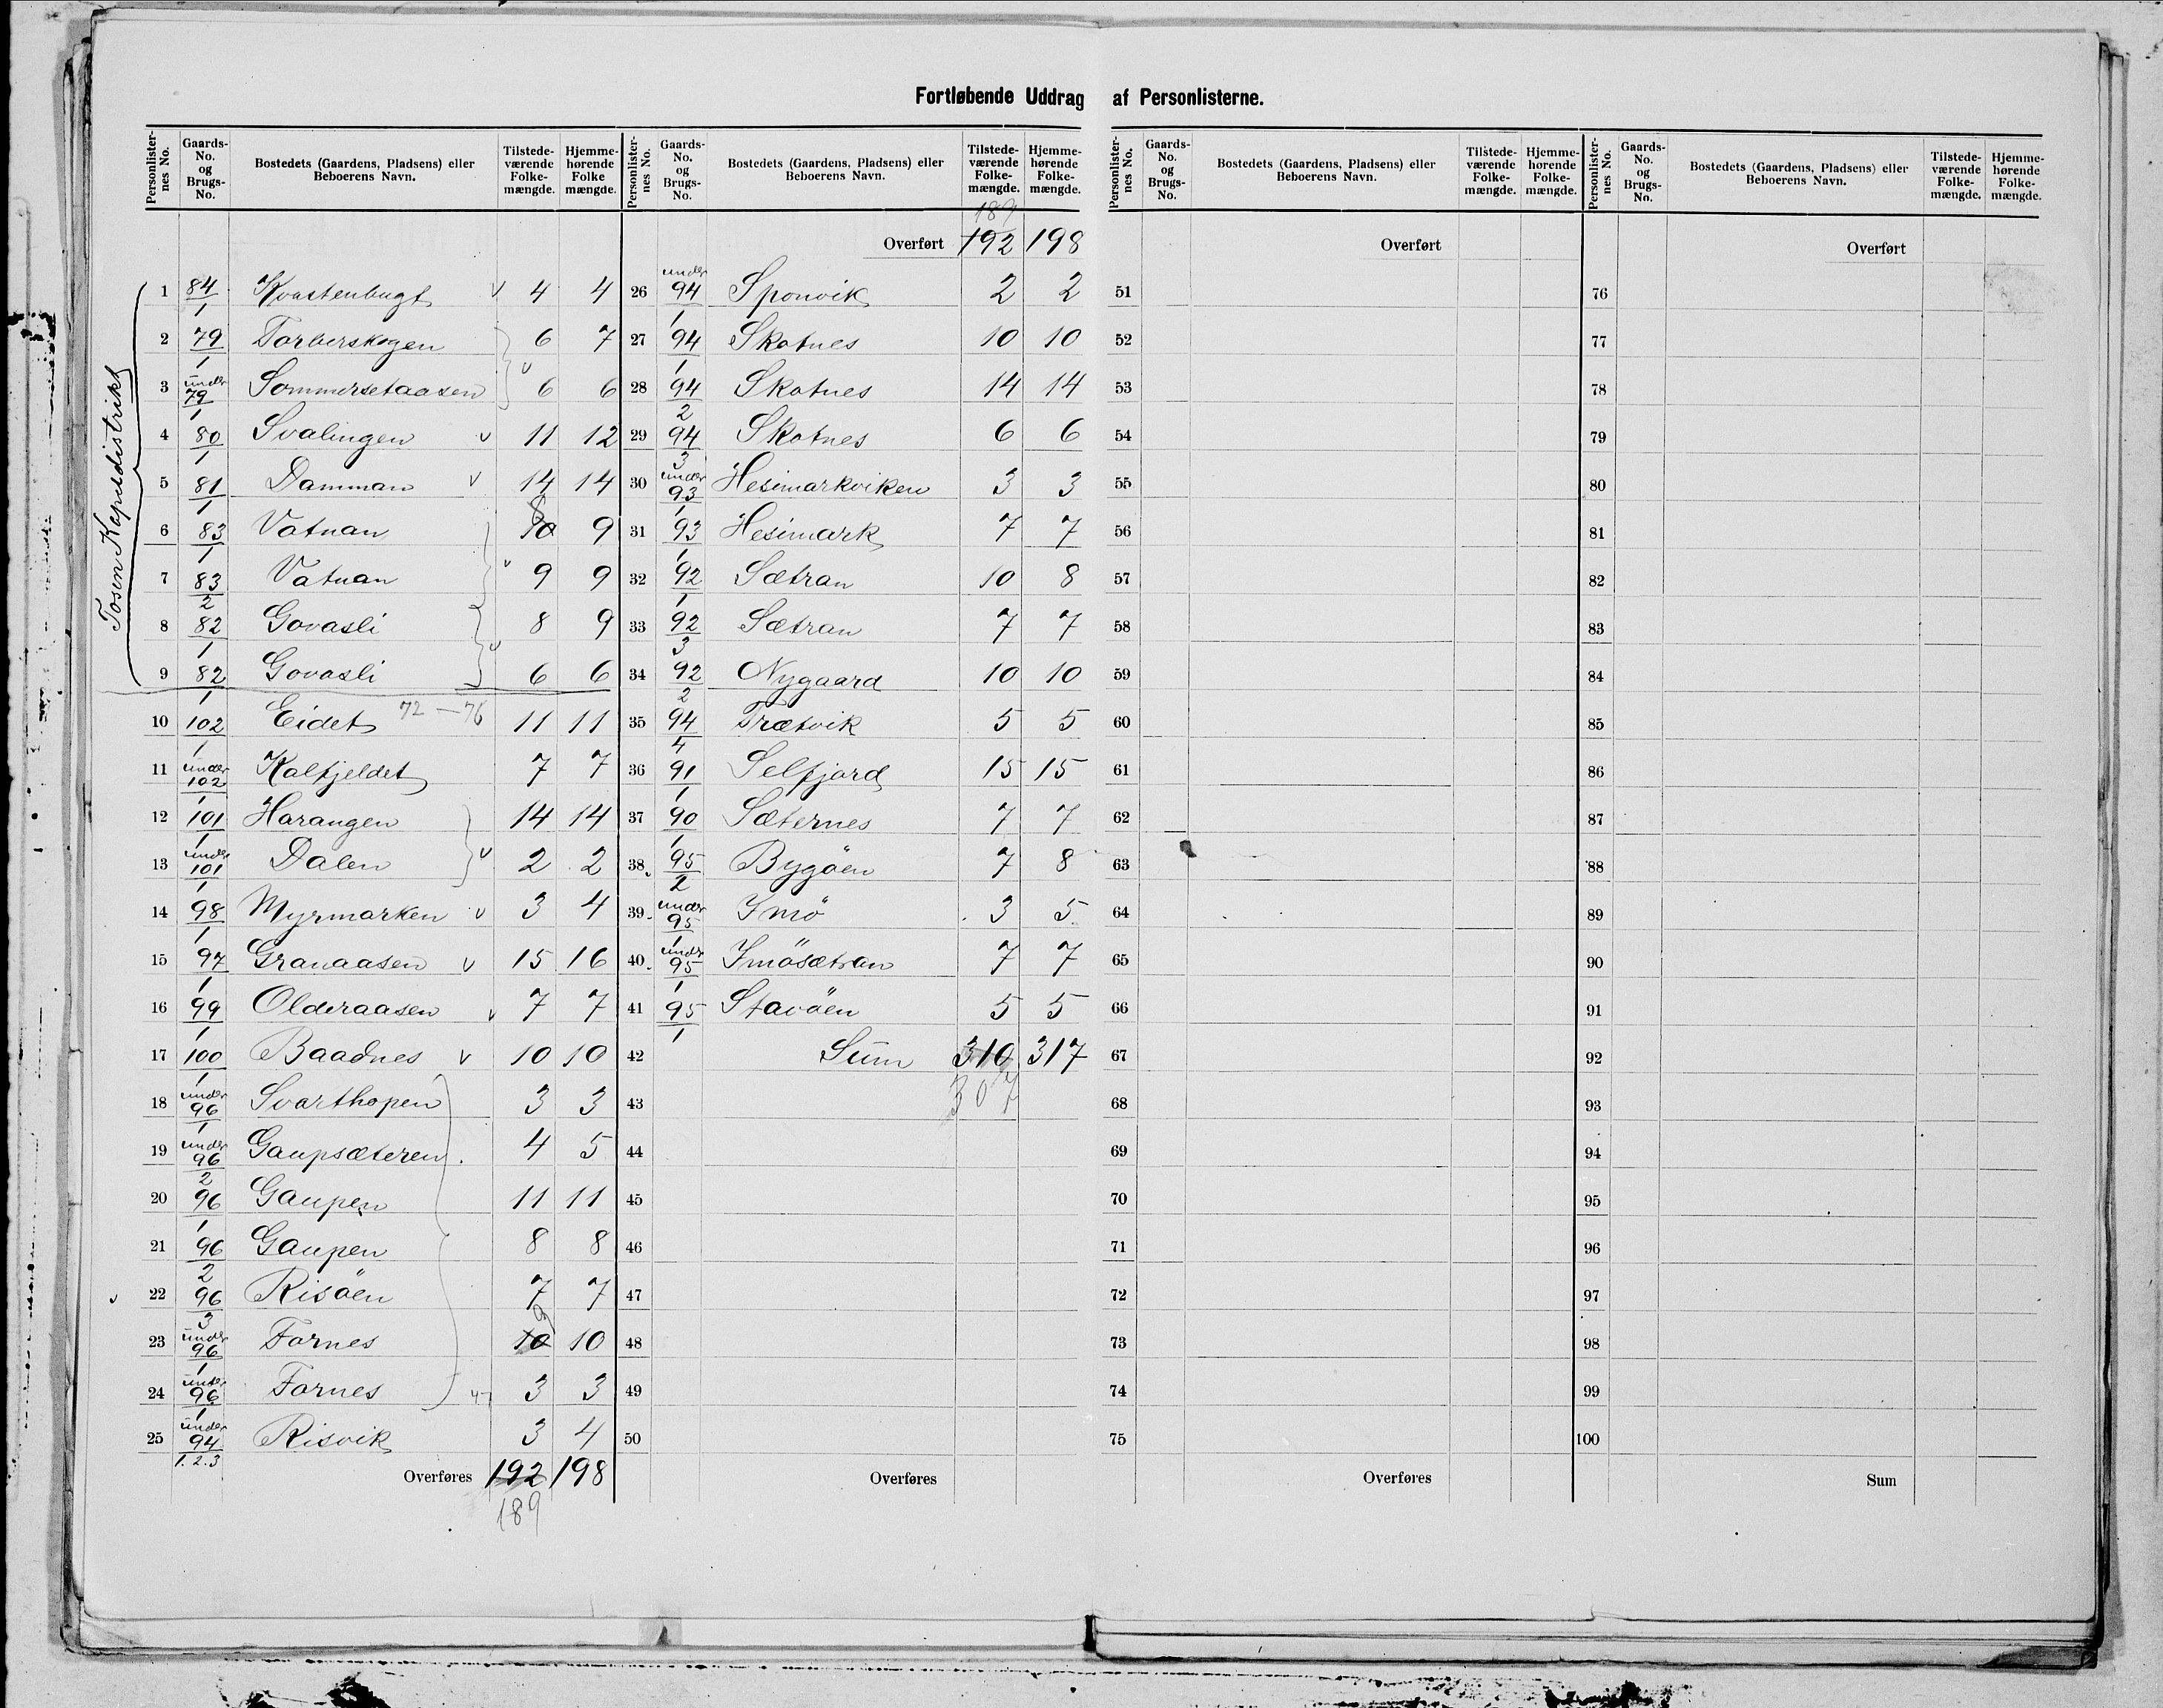 Fortløbende Uddrag af Personlisterne.
Personlisternes No. | Gaards-No. og Brugs-No. | Bostedets (Gaardens, Pladsens) eller Beboerens Navn. | Tilstedeværende Folkemængde. | Hjemmehørende Folke mængde.
Tosen Kapeldistrikt
1 | 84/1 | Kvastenbugt v | 4 | 4
2 | 79/1 | Torberskogen | 6 | 7
3 | under 79/1 | Sommersetaasen v | 6 | 6
4 | 80/1 | Svalingen v | 11 | 12
5 | 81/1 | Damman v | 14 | 14
6 | 83/1 | Vatnan | 10 8 | 9
7 | 83/2 | Vatnan v | 9 | 9
8 | 82/1 | Govasli | 8 | 9
9 | 82/1 | Govasli v | 6 | 6
10 | 102/1 | Eidet 72 — 76 | 11 | 11
11 | under 102/1 | Kalfjeldet | 7 | 7
12 | 101/1 | Harangen | 14 | 14
13 | under 101/1 | Dalen v | 2 | 2
14 | 98/1 | Myrmarken v | 3 | 4
15 | 97/1 | Granaasen v | 15 | 16
16 | 99/1 | Olderaasen v | 7 | 7
17 | 100/1 | Baadnes v | 10 | 10
18 | under 96/1 | Svarthopen | 3 | 3
19 | under 96/2 | Gaupsæteren | 4 | 5
20 | 96/1 | Gaupen | 11 | 11
21 | 96/2 | Gaupen | 8 | 8
v 22 | 96/3 | Risöen | 7 | 7
23 | under 96/1 | Fornes | 10 9 | 10
24 | under 96/1 | Fornes | 3 | 3
25 | under 94/1.2.3 | Risvik | 3 | 4
Overføres | 192 | 198
189
Personlisternes No. | Gaards-No. og Brugs-No. | Bostedets (Gaardens, Pladsens) eller Beboerens Navn. | Tilstedeværende Folkemængde. | Hjemmehørende Folkemængde.
189
Overført | 192 | 198
26 | under 94/1 | Sponvik | 2 | 2
27 | 94/1 | Skotnes | 10 | 10
28 | 94/2 | Skotnes | 14 | 14
29 | 94/3 | Skotnes | 6 | 6
30 | under 93/1 | Hesimarkviken | 3 | 3
31 | 93/1 | Hesimark | 7 | 7
32 | 92/1 | Sætran | 10 | 8
33 | 92/3 | Sætran | 7 | 7
34 | 92/2 | Nygaard | 10 | 10
35 | 94/4 | Trætvik | 5 | 5
36 | 91/1 | Selfjord | 15 | 15
37 | 90/1 | Sæternes | 7 | 7
38 | 95/2 | Bygöen | 7 | 8
39 | under 95/1 | Imö | 3 | 5
40 | under 95/1 | Imösætran | 7 | 7
41 | 95/1 | Stavöen | 5 | 5
42 | Sum | 310 | 317
43 | 307
44
45
46
47
48
49
50
Overføres
Personlisternes No. | Gaards-No. og Brugs-No. | Bostedets (Gaardens, Pladsens) eller Beboerens Navn. | Tilstedeværende Folkemængde. | Hjemmehørende Folkemængde.
Overført
51
52
53
54
55
56
57
58
59
60
61
62
63
64
65
66
67
68
69
70
71
72
73
74
75
Overføres
Personlisternes No. | Gaards-No. og Brugs-No. | Bostedets (Gaardens, Pladsens) eller Beboerens Navn. | Tilstedeværende Folkemængde. | Hjemmehørende Folkemængde.
Overført
76
77
78
79
80
81
82
83
84
85
86
87
88
89
90
91
92
93
94
95
96
97
98
99
100
Sum